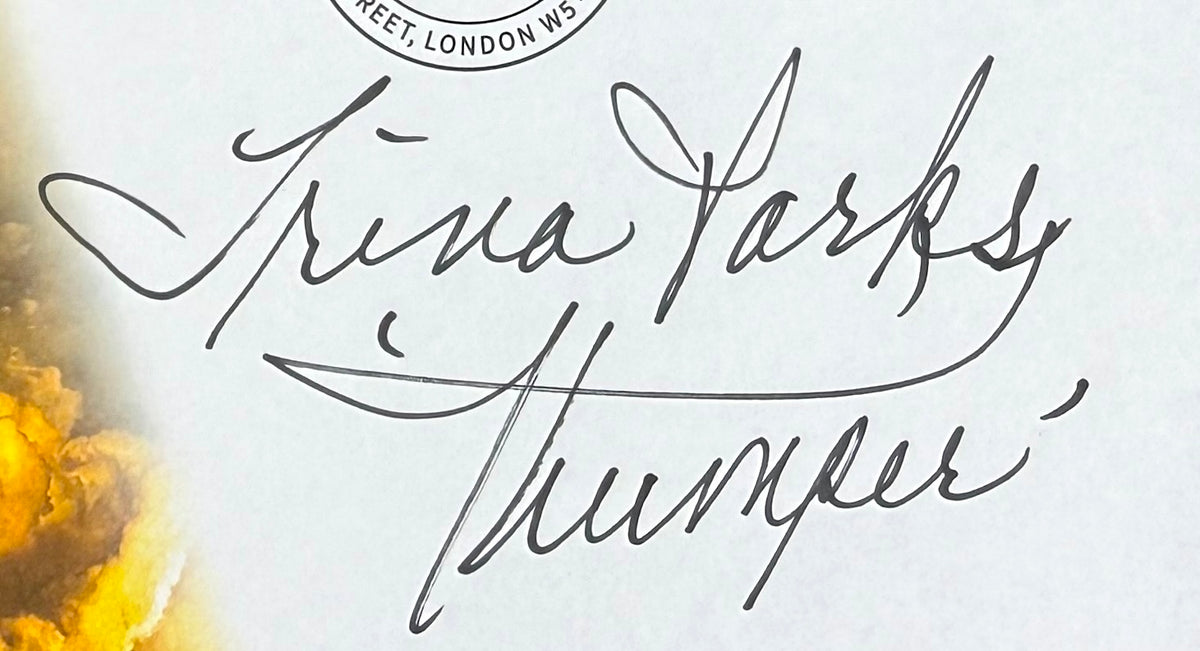 REET, LONDON W5
Trina Parks,
'Thumper'